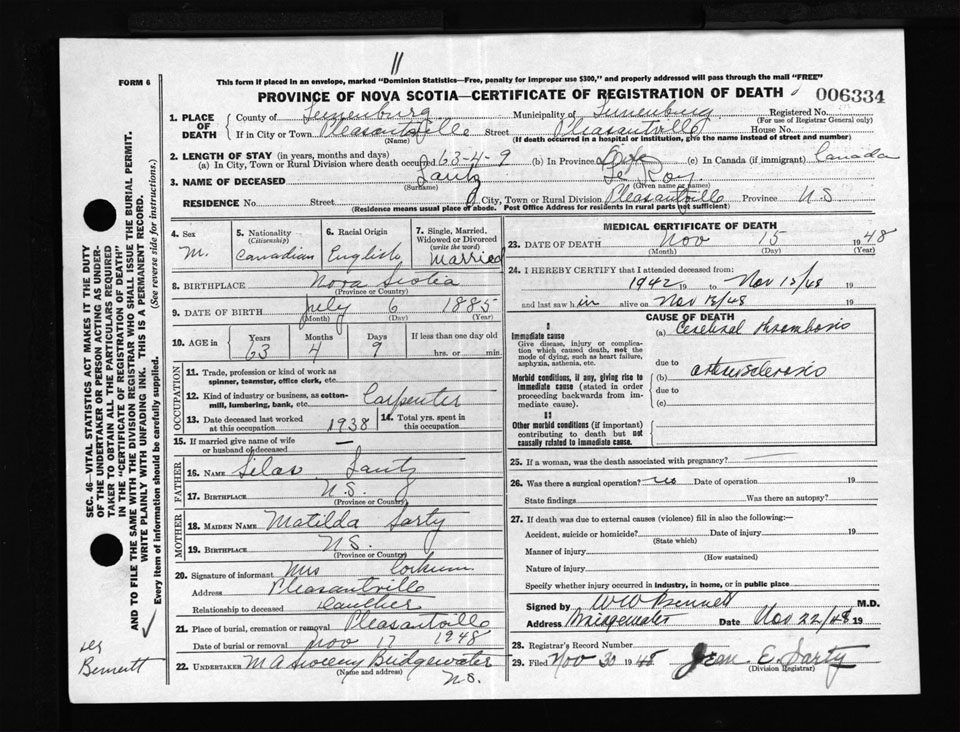 11
FORM 6
This form if placed in an envelope, marked "Dominion Statistics—Free, penalty for improper use $300," and properly addressed will pass through the mail "FREE"
PROVINCE OF NOVA SCOTIA—CERTIFICATE OF REGISTRATION OF DEATH 006334
1. PLACE OF DEATH
County of Lunenburg Municipality of Lunenburg Registered No.
(For use of Registrar General only)
If in City or Town Pleasantville Street Pleasantville House No.
(If death occurred in a hospital or institution, give the name instead of street and number)
2. LENGTH OF STAY (in years, months and days)
(a) In City, Town or Rural Division where death occurred 63-4-9 (b) In Province Life (c) In Canada (if immigrant) Canada
3. NAME OF DECEASED Lantz Le Roy
(Surname) (Given name or names)
RESIDENCE No. Street City, Town or Rural Division Pleasantville Province N.S
(Residence means usual place of abode. Post Office Address for residents in rural parts not sufficient)
4. Sex M.
5. Nationality (Citizenship) Canadian
6. Racial Origin English
7. Single, Married, Widowed or Divorced (write the word) Married
8. BIRTHPLACE Nova Scotia
(Province or Country)
9. DATE OF BIRTH July 6 1885
(Month) (Day) (Year)
10. AGE in Years Months Days If less than one day old
63 4 9 hrs. or min.
OCCUPATION
11. Trade, profession or kind of work as spinner, teamster, office clerk, etc.
12. Kind of industry or business, as cotton-mill, lumbering, bank, etc. Carpenter
13. Date deceased last worked at this occupation 1938
14. Total yrs. spent in this occupation
15. If married give name of wife or husband of deceased —
FATHER
16. NAME Silas Lantz
17. BIRTHPLACE N.S.
MOTHER
18. MAIDEN NAME Matilda Sarty
19. BIRTHPLACE N.S.
(Province or Country)
20. Signature of informant Mrs Corkum
Address Pleasantville
Relationship to deceased Daughter
21. Place of burial, cremation or removal Pleasantville
Date of burial or removal Nov 17 1948
22. UNDERTAKER M A Sweeny Bridgewater
(Name and address) N.S.
MEDICAL CERTIFICATE OF DEATH
23. DATE OF DEATH Nov 15 1948
(Month) (Day) (Year)
24. I HEREBY CERTIFY that I attended deceased from:
1942 19 to Nov 15/48 19
and last saw him alive on Nov 13/48 19
CAUSE OF DEATH
I
Immediate cause (a) Cerebral Thrombosis
Give disease, injury or complication which caused death, not the mode of dying, such as heart failure, asphyxia, asthenia, etc.
due to
Morbid conditions, if any, giving rise to immediate cause (stated in order proceeding backwards from immediate cause).
(b) arteriosclerosis
due to
(c)
II
Other morbid conditions (if important) contributing to death but not causally related to immediate cause.
25. If a woman, was the death associated with pregnancy?
26. Was there a surgical operation? no Date of operation 19
State findings Was there an autopsy?
27. If death was due to external causes (violence) fill in also the following:—
Accident, suicide or homicide? Date of injury 19
(State which)
Manner of injury
(How sustained)
Nature of injury
Specify whether injury occurred in industry, in home, or in public place
Signed by WW Bennett M.D.
Address Bridgewater Date Nov 22/48 19
28. Registrar's Record Number
29. Filed Nov 30 1948 Jean E. Sarty
(Division Registrar)
SEC. 46—VITAL STATISTICS ACT MAKES IT THE DUTY
OF THE UNDERTAKER OR PERSON ACTING AS UNDER-
TAKER TO OBTAIN ALL THE PARTICULARS REQUIRED
IN THE "CERTIFICATE OF REGISTRATION OF DEATH"
AND TO FILE THE SAME WITH THE DIVISION REGISTRAR WHO SHALL ISSUE THE BURIAL PERMIT.
WRITE PLAINLY WITH UNFADING INK. THIS IS A PERMANENT RECORD.
Every item of information should be carefully supplied. (See reverse side for instructions.)
Bennett